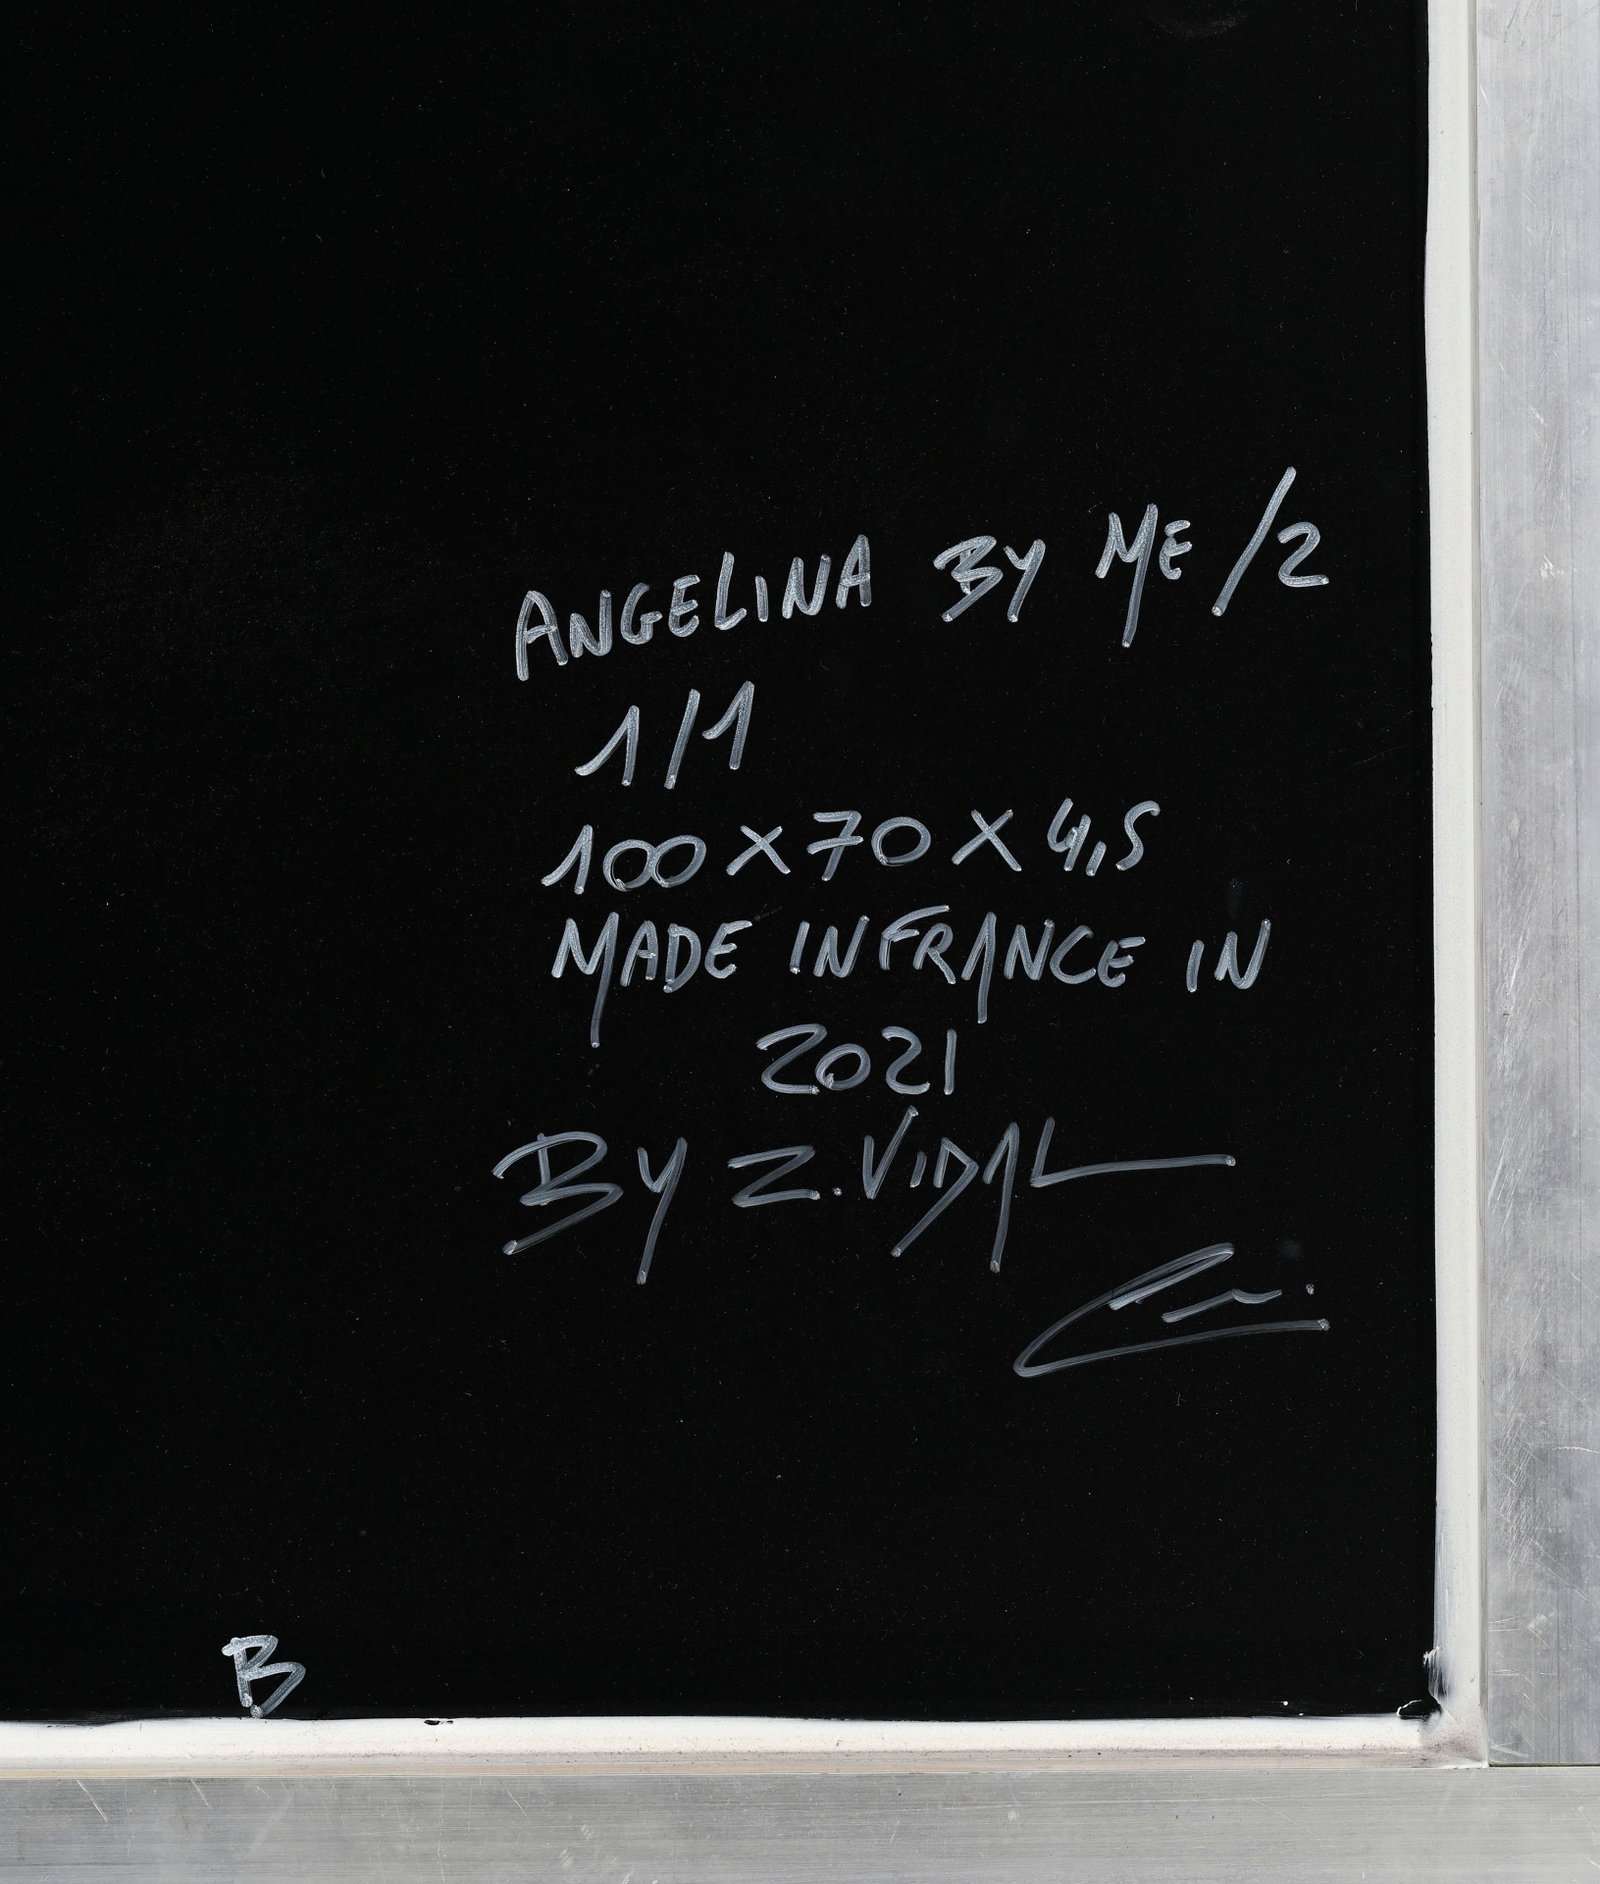 ANGELINA BY ME /2
1/1
100 x 70 x 4,5
MADE IN FRANCE IN
2021
BY Z. VIDAL
B